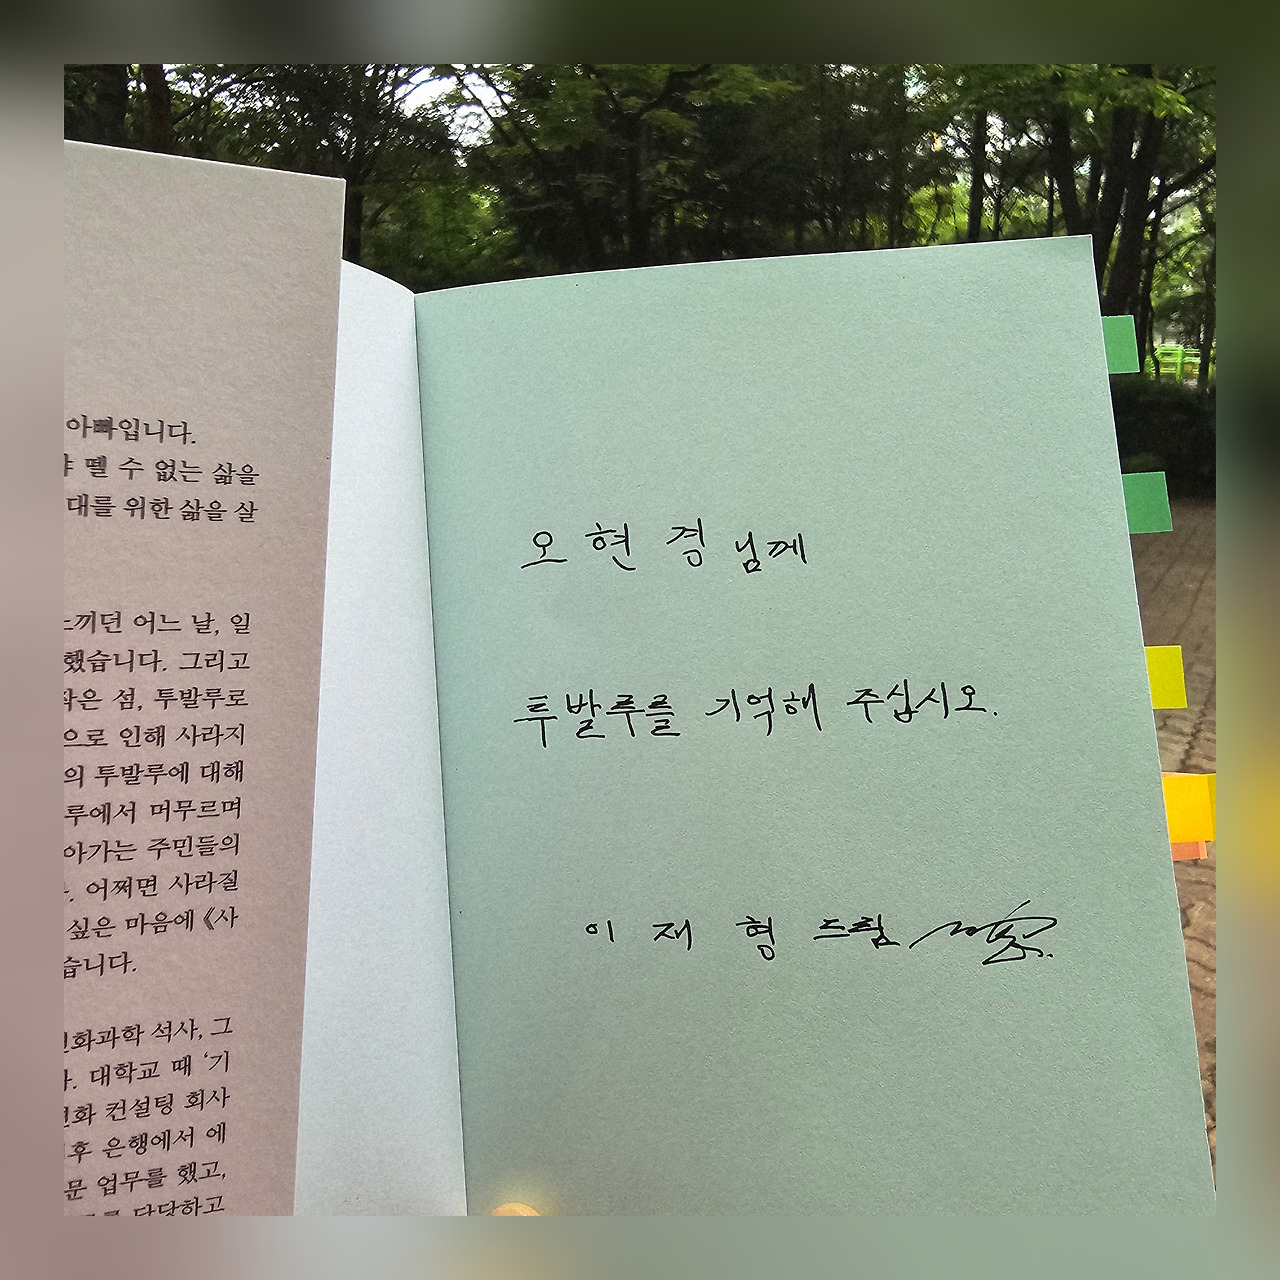 아빠입니다.
뗄 수 없는 삶을
대를 위한 삶을 살
느끼던 어느 날, 일
했습니다. 그리고
작은 섬, 투발루로
으로 인해 사라지
의 투발루에 대해
루에서 머무르며
아가는 주민들의
어쩌면 사라질
싶은 마음에 《사
습니다.
변화과학 석사, 그
대학교 때 ‘기
변화 컨설팅 회사
후 은행에서 에
문 업무를 했고,
담당하고
오현경 님께
투발루를 기억해 주십시오.
이재형 드림